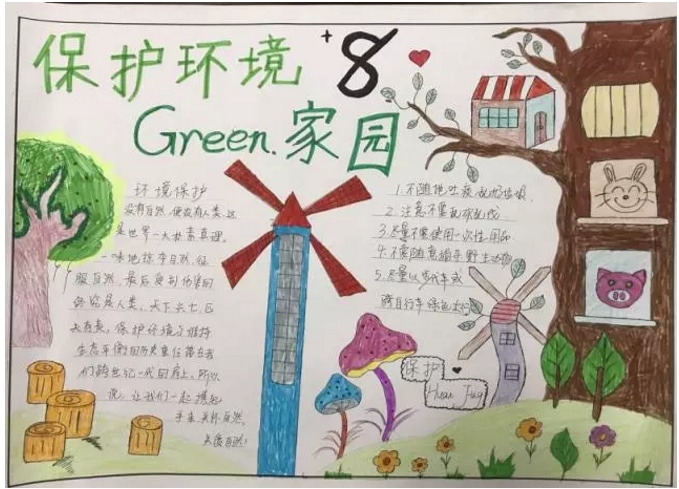 保护环境
+8
Green.家园
环境保护
没有自然，便没有人类，这
是世界一大朴素真理。
一味地掠夺自然，征
服自然，最后受到伤害的
始终是人类。天下兴亡，匹
夫有责。保护环境、维持
生态平衡的历史重任落在我
们跨世纪一代的肩上。所以
说，让我们一起携起
手来关怀自然，
关爱自然！
1.不随地吐痰乱扔垃圾。
2.注意不要乱砍乱伐
3.尽量不要使用一次性用品
4.不要随意捕杀野生动物
5.尽量以步代车或
骑自行车绿色出行
保护
Huan Jing